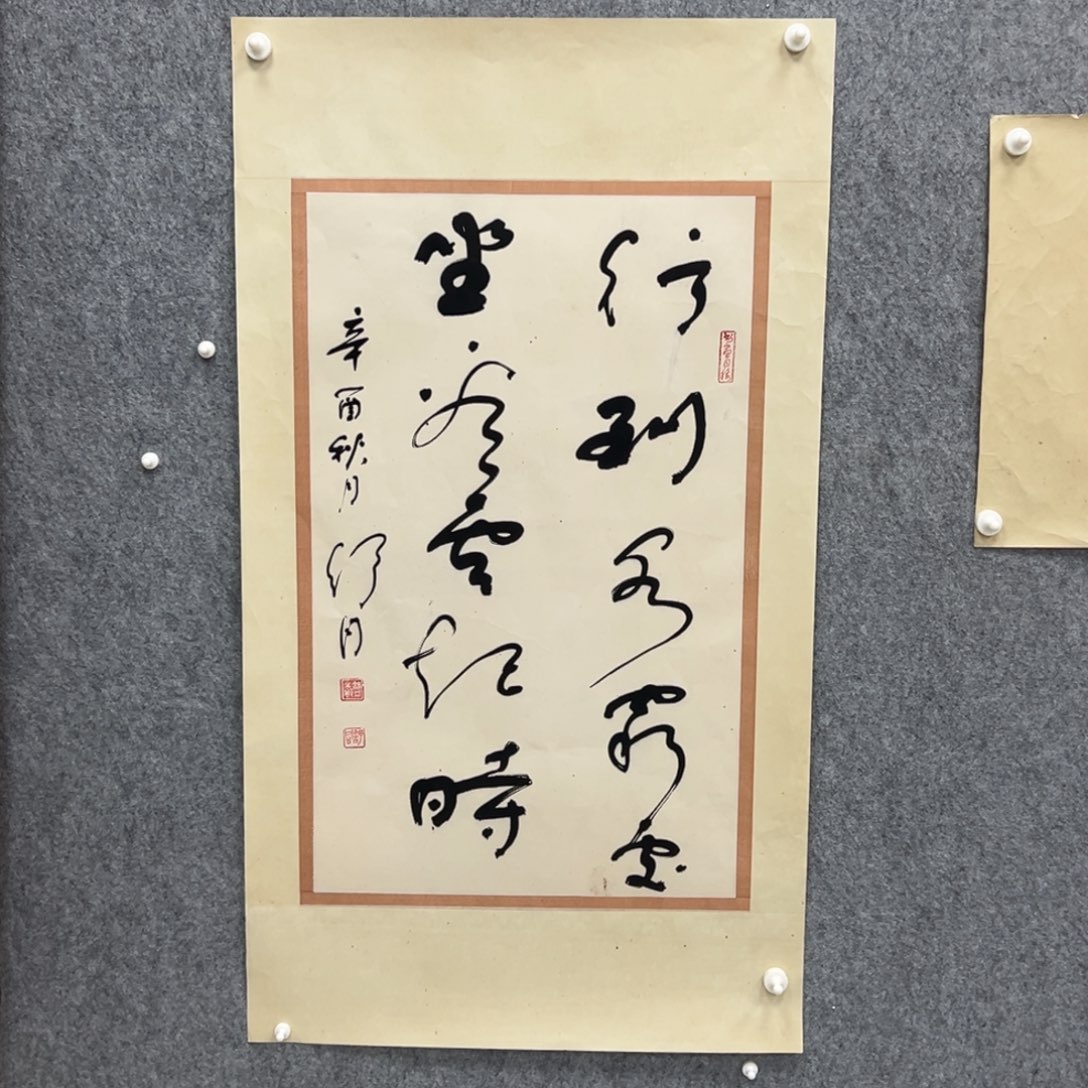 行到水窮處
坐看雲起時
辛酉秋月